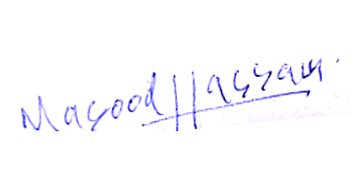 Masood Hassan.